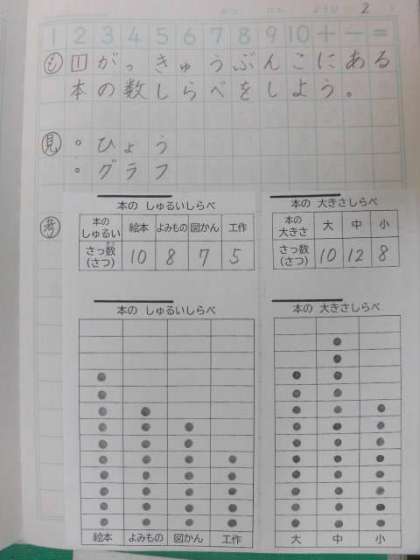 2
1 2 3 4 5 6 7 8 9 10 + − =
1 がっきゅうぶんこにある
本の数しらべをしよう。
見 ・ひょう
・グラフ
考
本の しゅるいしらべ
本の しゅるい 絵本 よみもの 図かん 工作
さっ数 (さつ) 10 8 7 5
本の 大きさしらべ
本の 大きさ 大 中 小
さっ数 (さつ) 10 12 8
本の しゅるいしらべ
絵本 よみもの 図かん 工作
本の 大きさしらべ
大 中 小